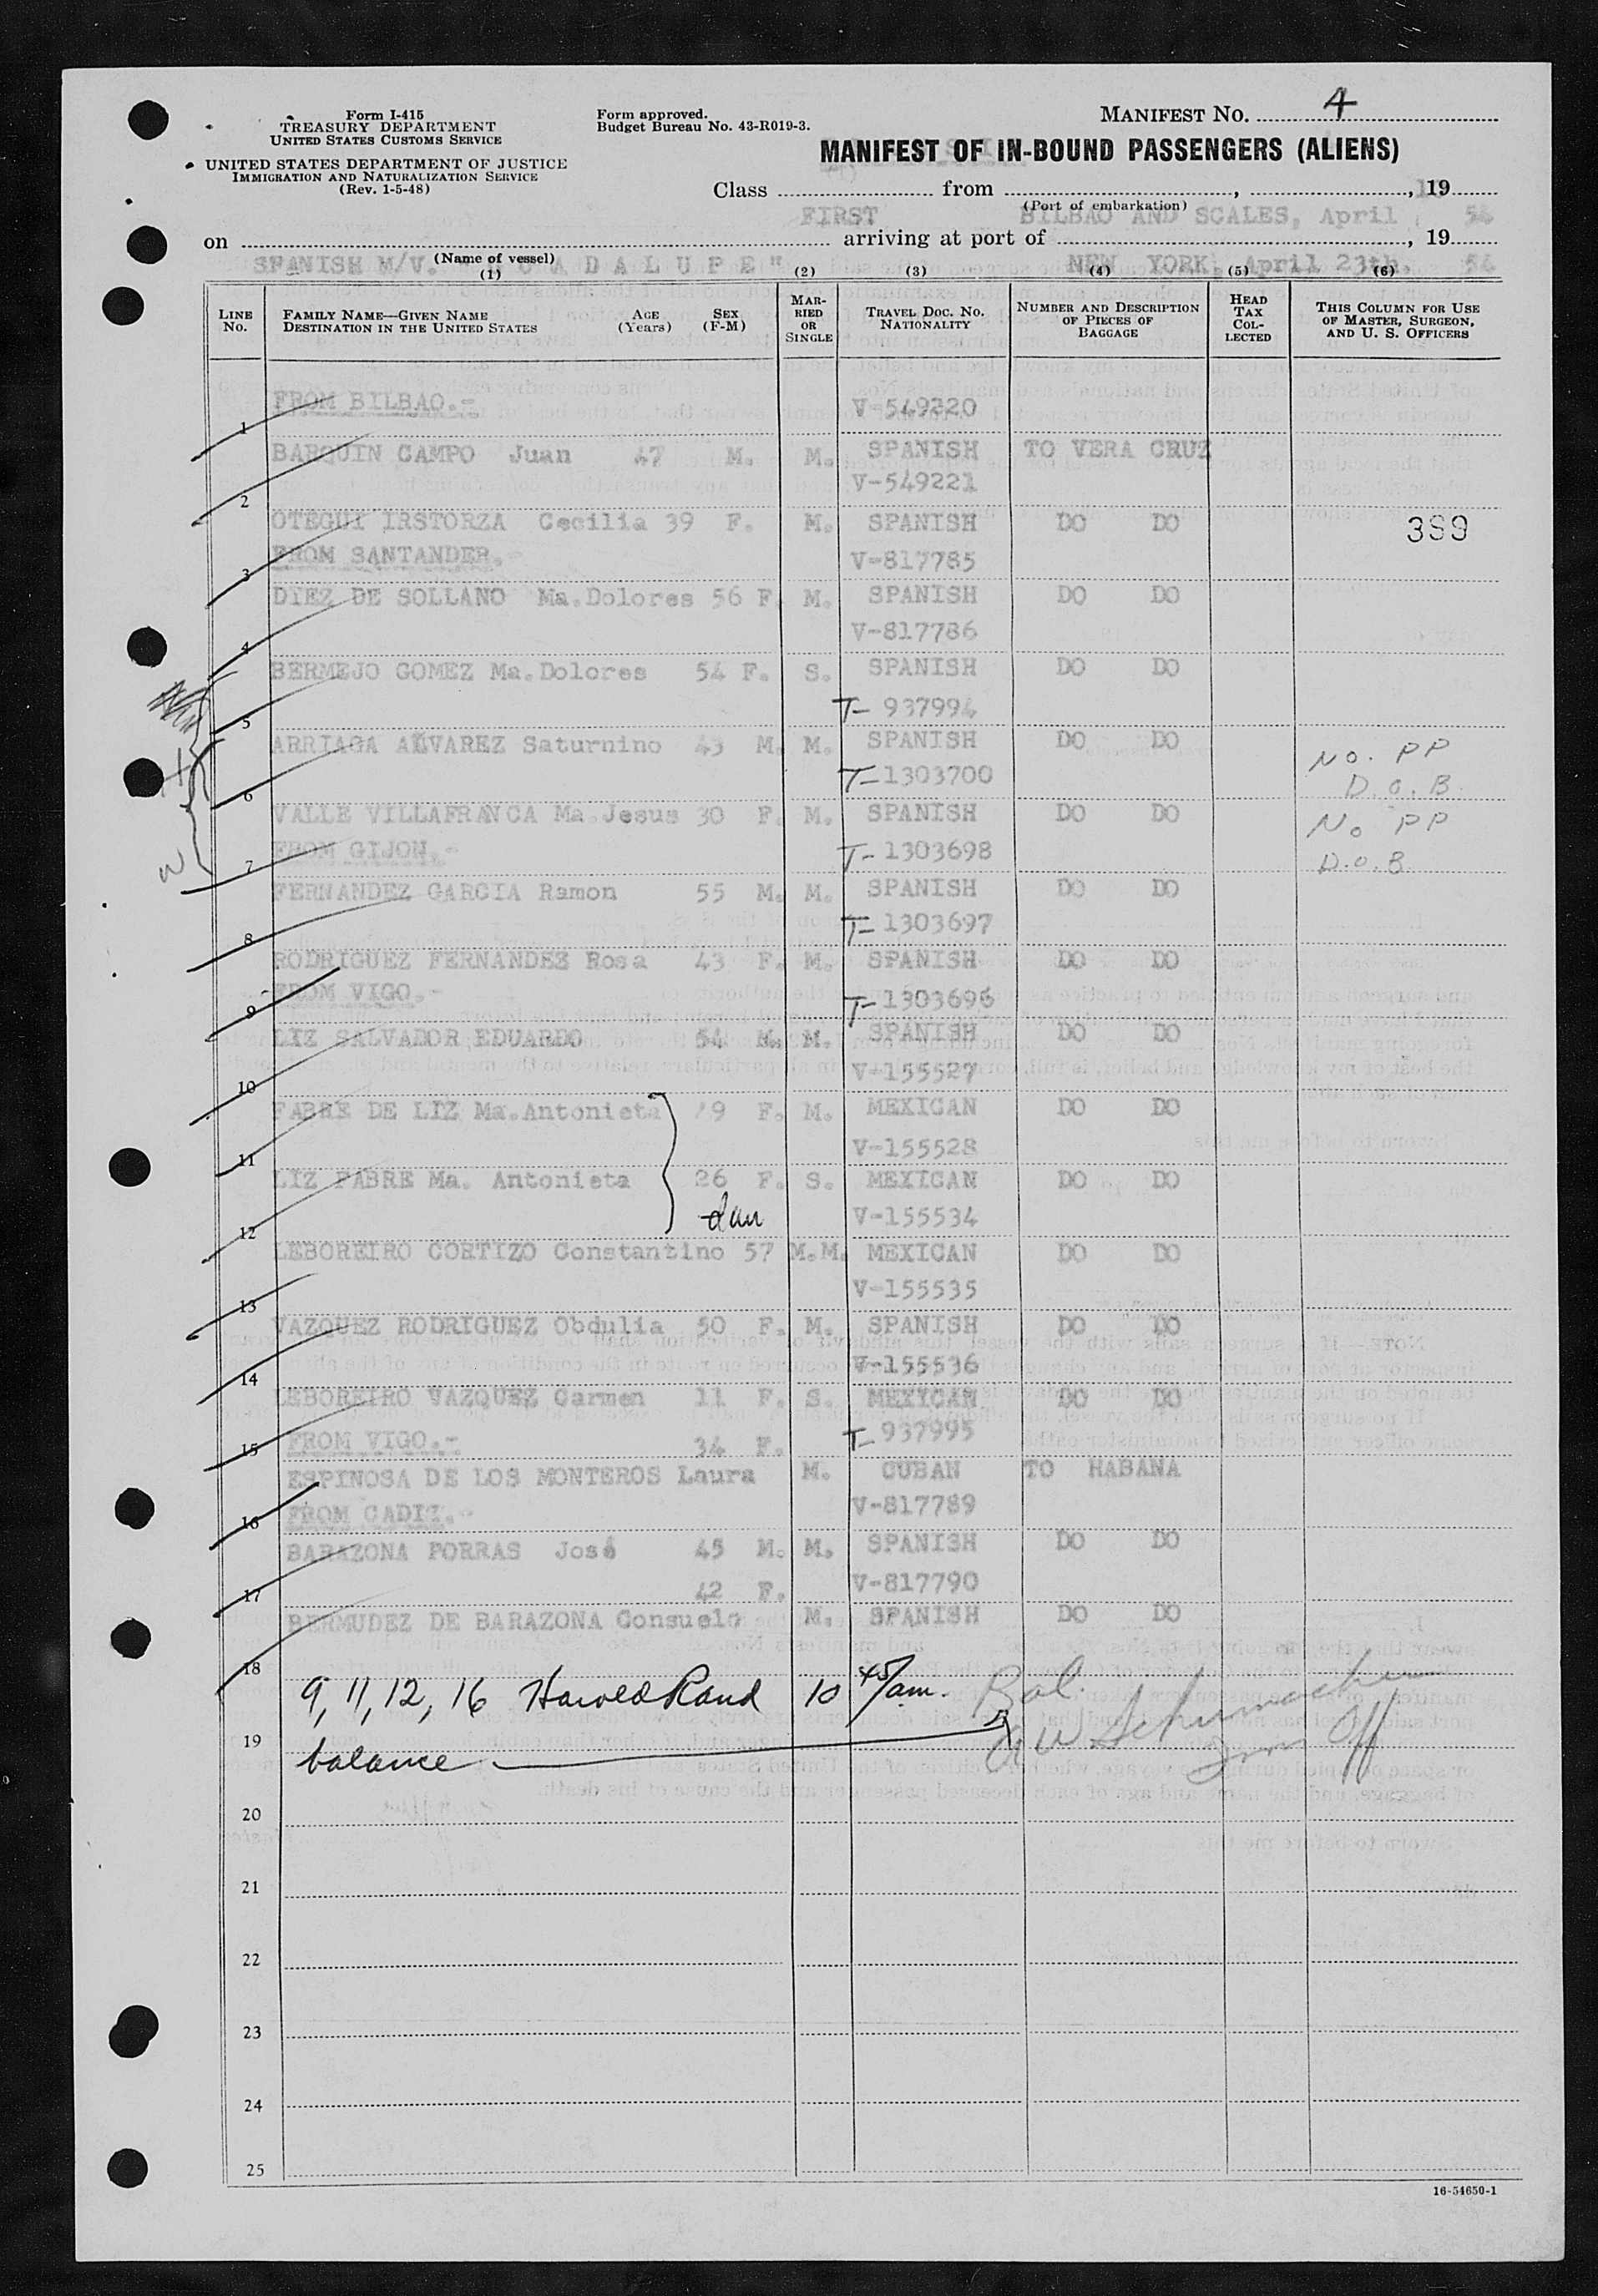 Form I-415
TREASURY DEPARTMENT
UNITED STATES CUSTOMS SERVICE
UNITED STATES DEPARTMENT OF JUSTICE
IMMIGRATION AND NATURALIZATION SERVICE
(Rev. 1-5-48)
Form approved.
Budget Bureau No. 43-R019-3.
MANIFEST No. 4
MANIFEST OF IN-BOUND PASSENGERS (ALIENS)
Class from , , 19
(Port of embarkation)
FIRST BILBAO AND SCALES, April 54
on arriving at port of , 19
(Name of vessel)
SPANISH M/V. "GUADALUPE" NEW YORK, April 23th. 54
(1) (2) (3) (4) (5) (6)
LINE No. FAMILY NAME—GIVEN NAME DESTINATION IN THE UNITED STATES AGE (Years) SEX (F-M) MARRIED OR SINGLE TRAVEL DOC. NO. NATIONALITY NUMBER AND DESCRIPTION OF PIECES OF BAGGAGE HEAD TAX COLLECTED THIS COLUMN FOR USE OF MASTER, SURGEON, AND U. S. OFFICERS
FROM BILBAO.- V-549220
1
BARQUIN CAMPO Juan 47 M. M. SPANISH TO VERA CRUZ
V-549221
2
OTEGUI IRSTORZA Cecilia 39 F. M. SPANISH DO DO 389
FROM SANTANDER.- V-817785
3
DIEZ DE SOLLANO Ma.Dolores 56 F. M. SPANISH DO DO
V-817786
4
BERMEJO GOMEZ Ma.Dolores 54 F. S. SPANISH DO DO
T- 937994
5
ARRIAGA ALVAREZ Saturnino 43 M. M. SPANISH DO DO No. PP
T-1303700 D.O.B.
6
VALLE VILLAFRANCA Ma.Jesus 30 F. M. SPANISH DO DO No PP
FROM GIJON.- T-1303698 D.O.B.
7
FERNANDEZ GARCIA Ramon 55 M. M. SPANISH DO DO
T-1303697
8
RODRIGUEZ FERNANDEZ Rosa 43 F. M. SPANISH DO DO
FROM VIGO.- T-1303696
9
LIZ SALVADOR EDUARDO 54 M. M. SPANISH DO DO
V-155527
10
FABRE DE LIZ Ma.Antonieta 9 F. M. MEXICAN DO DO
V-155528
11
LIZ FABRE Ma. Antonieta 26 F. S. MEXICAN DO DO
V-155534
12
LEBOREIRO CORTIZO Constantino 57 M. M. MEXICAN DO DO
V-155535
13
VAZQUEZ RODRIGUEZ Obdulia 50 F. M. SPANISH DO DO
V-155536
14
LEBOREIRO VAZQUEZ Carmen 11 F. S. MEXICAN DO DO
FROM VIGO.- 34 F. T- 937995
15
ESPINOSA DE LOS MONTEROS Laura M. CUBAN TO HABANA
FROM CADIZ.- V-817789
16
BARAZONA PORRAS José 45 M. M. SPANISH DO DO
42 F. V-817790
17
BERMUDEZ DE BARAZONA Consuelo M. SPANISH DO DO
18
9, 11, 12, 16 Harold Rand 10 45/am. Bal.
19
balance A W Schumacher Imm Off
20
21
22
23
24
25
16-54650-1